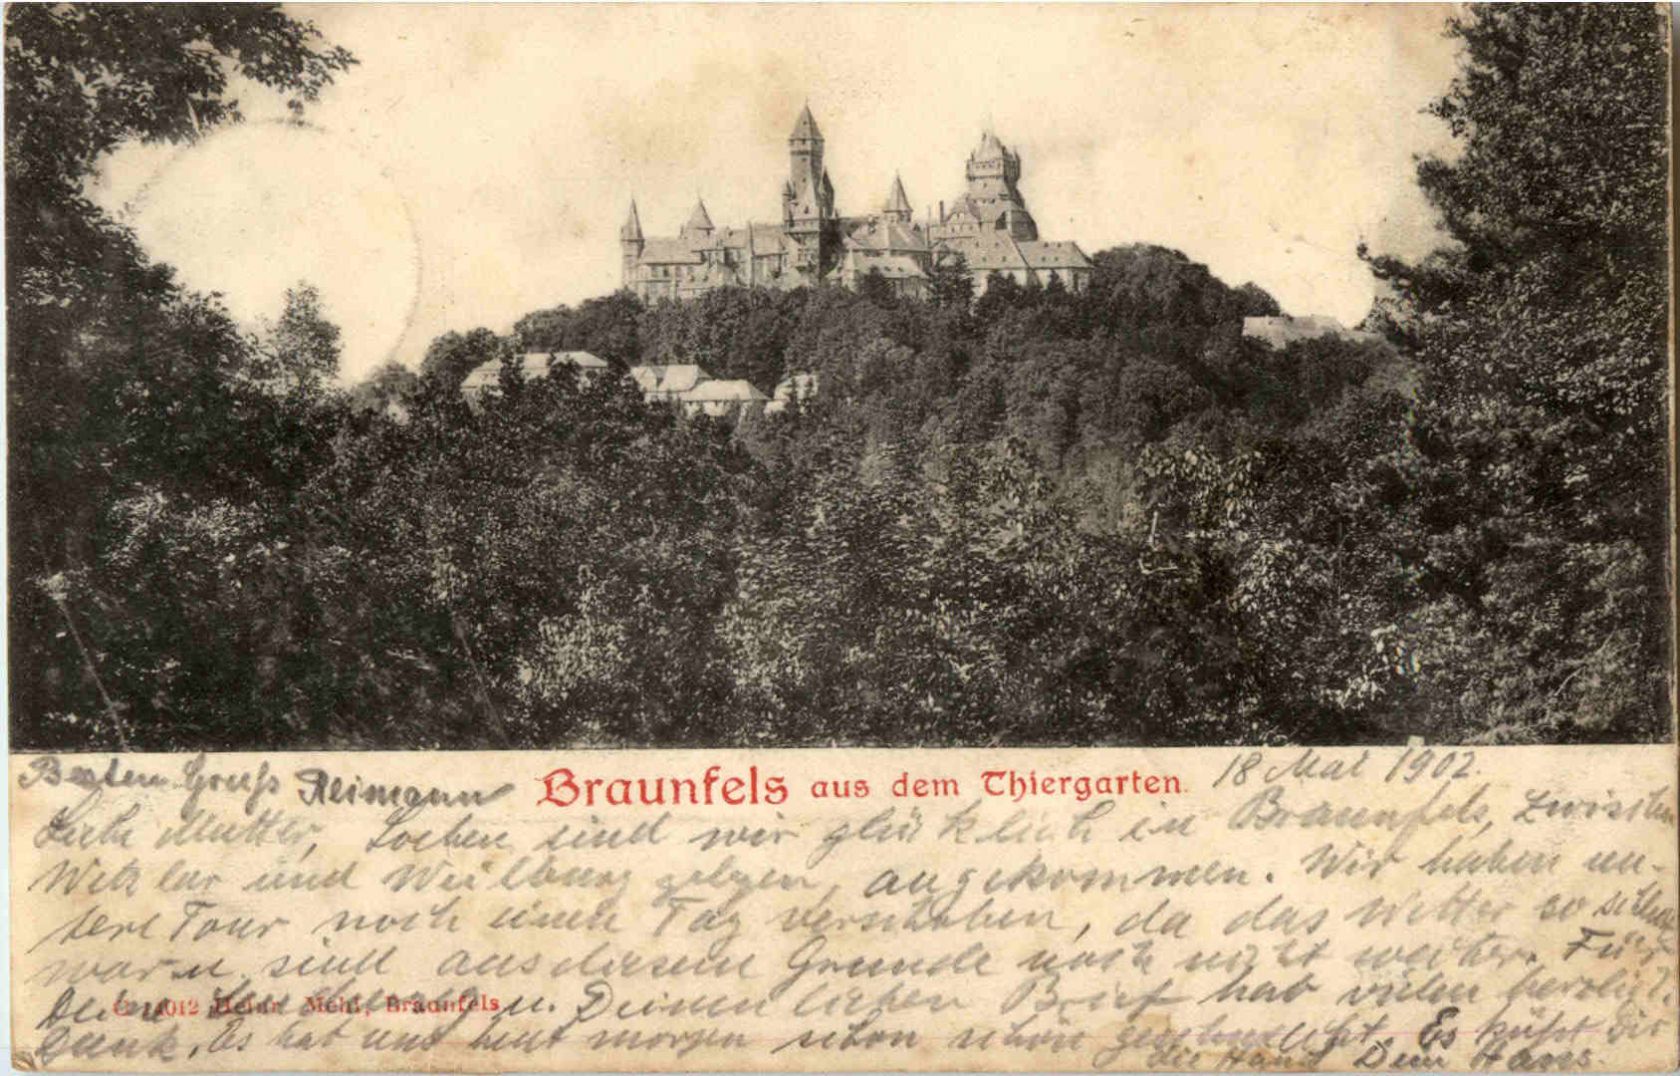 Besten Gruß Reimann
Braunfels aus dem Thiergarten.
18 Mai 1902.
Liebe Mutter, Soeben sind wir glücklich in Braunfels, zwischen
Wetzlar und Weilburg gelegen, angekommen. Wir haben un-
sere Tour noch einen Tag verschoben, da das Wetter so schlecht
war u. sind aus diesem Grunde noch nicht weiter. Für
Deine u. Deinen lieben Brief hab vielen herzligt.
Dank. Es hat uns heut morgen schon schön geschmeckt. Es küßt Dir
die Hand Dein Hans.
C 14012 Heinr. Mehl, Braunfels